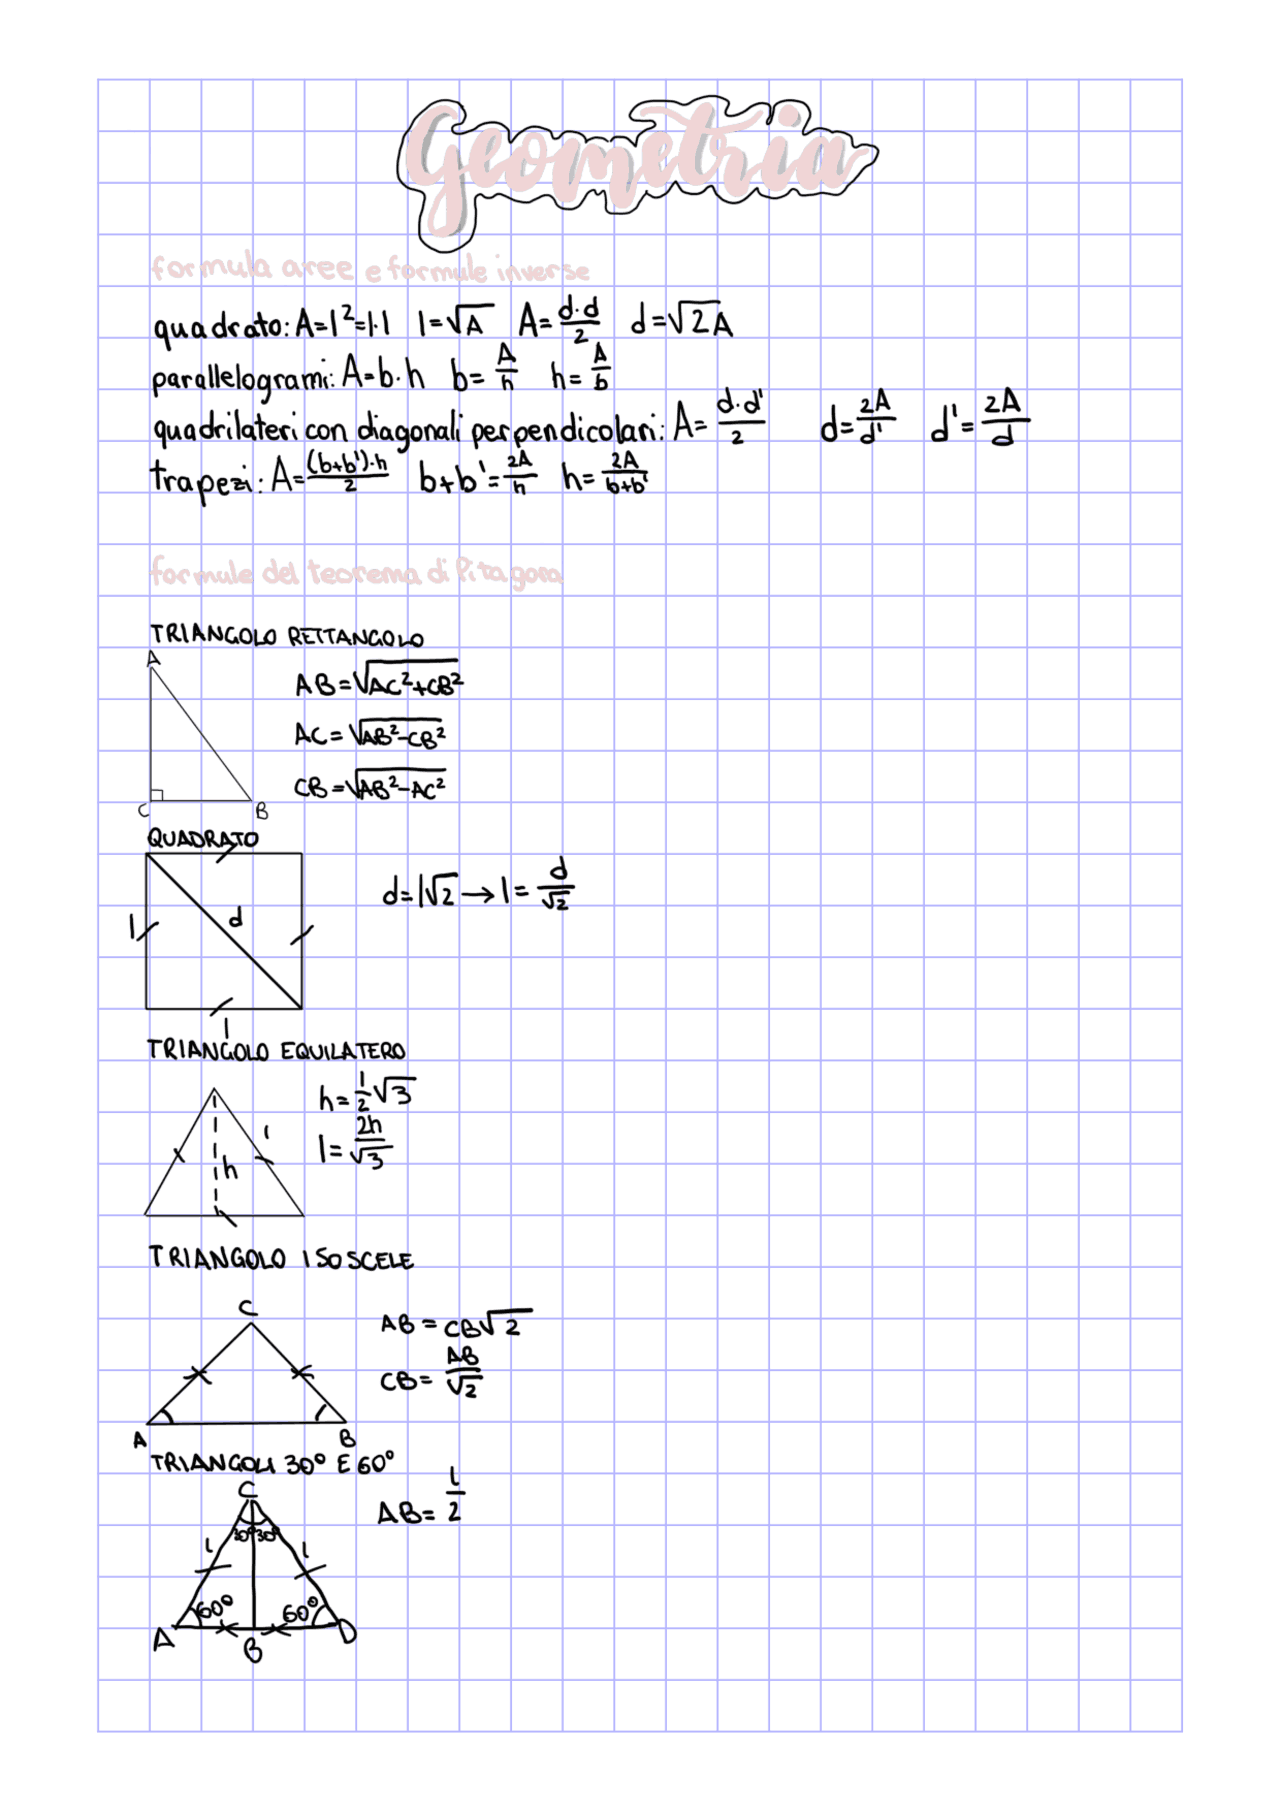 Geometria
formula aree e formule inverse
quadrato: A=l²=l·l l=√A A=d·d/2 d=√2A
parallelogrami: A=b·h b=A/h h=A/b
quadrilateri con diagonali perpendicolari: A=d·d'/2 d=2A/d' d'=2A/d
trapezi: A=(b+b')·h/2 b+b'=2A/h h=2A/b+b'
formule del teorema di Pitagora
TRIANGOLO RETTANGOLO
A
AB=√AC²+CB²
AC=√AB²-CB²
CB=√AB²-AC²
C B
QUADRATO
d=l√2→l=d/√2
l d
l
TRIANGOLO EQUILATERO
h=l/2√3
l=2h/√3
l
h
TRIANGOLO ISOSCELE
C
AB=CB√2
CB=AB/√2
A B
TRIANGOLI 30° E 60°
C
AB=l/2
30° 30°
l l
60° 60°
A B D